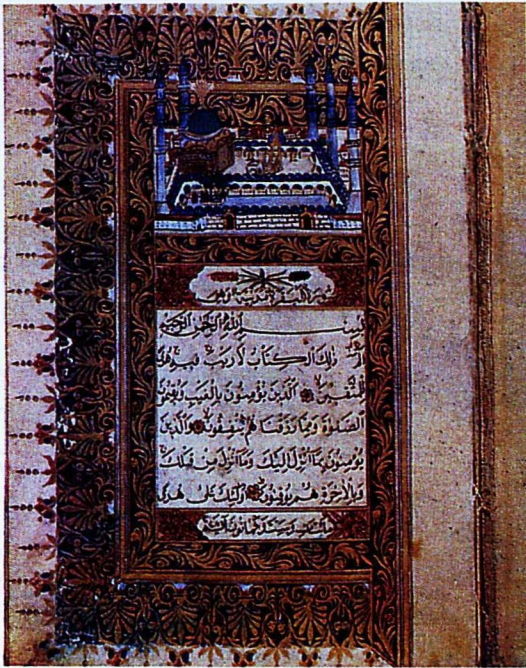 سورة البقرة مدنية وهي
بِسْمِ اللهِ الرَّحْمٰنِ الرَّحِيمِ
الم ذٰلِكَ الْكِتَابُ لَا رَيْبَ فِيهِ هُدًى
لِلْمُتَّقِينَ الَّذِينَ يُؤْمِنُونَ بِالْغَيْبِ وَيُقِيمُونَ
الصَّلٰوةَ وَمِمَّا رَزَقْنَاهُمْ يُنْفِقُونَ وَالَّذِينَ
يُؤْمِنُونَ بِمَا اُنْزِلَ اِلَيْكَ وَمَا اُنْزِلَ مِنْ قَبْلِكَ
وَبِالْاٰخِرَةِ هُمْ يُوقِنُونَ اُولٰئِكَ عَلٰى هُدًى
وثمانون آية